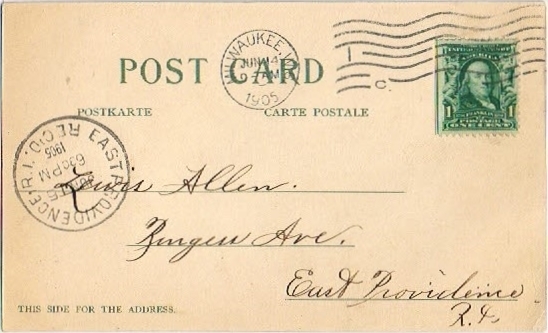 POST CARD
POSTKARTE CARTE POSTALE
MILWAUKEE, WIS.
JUN 14
AM
1905
1 C.
1 1
ONE CENT
EAST PROVIDENCE, R.I.
REC'D.
1905
6 30 PM
JUN 15
Lewis Allen.
Ave.
East Providence
R.I.
THIS SIDE FOR THE ADDRESS.